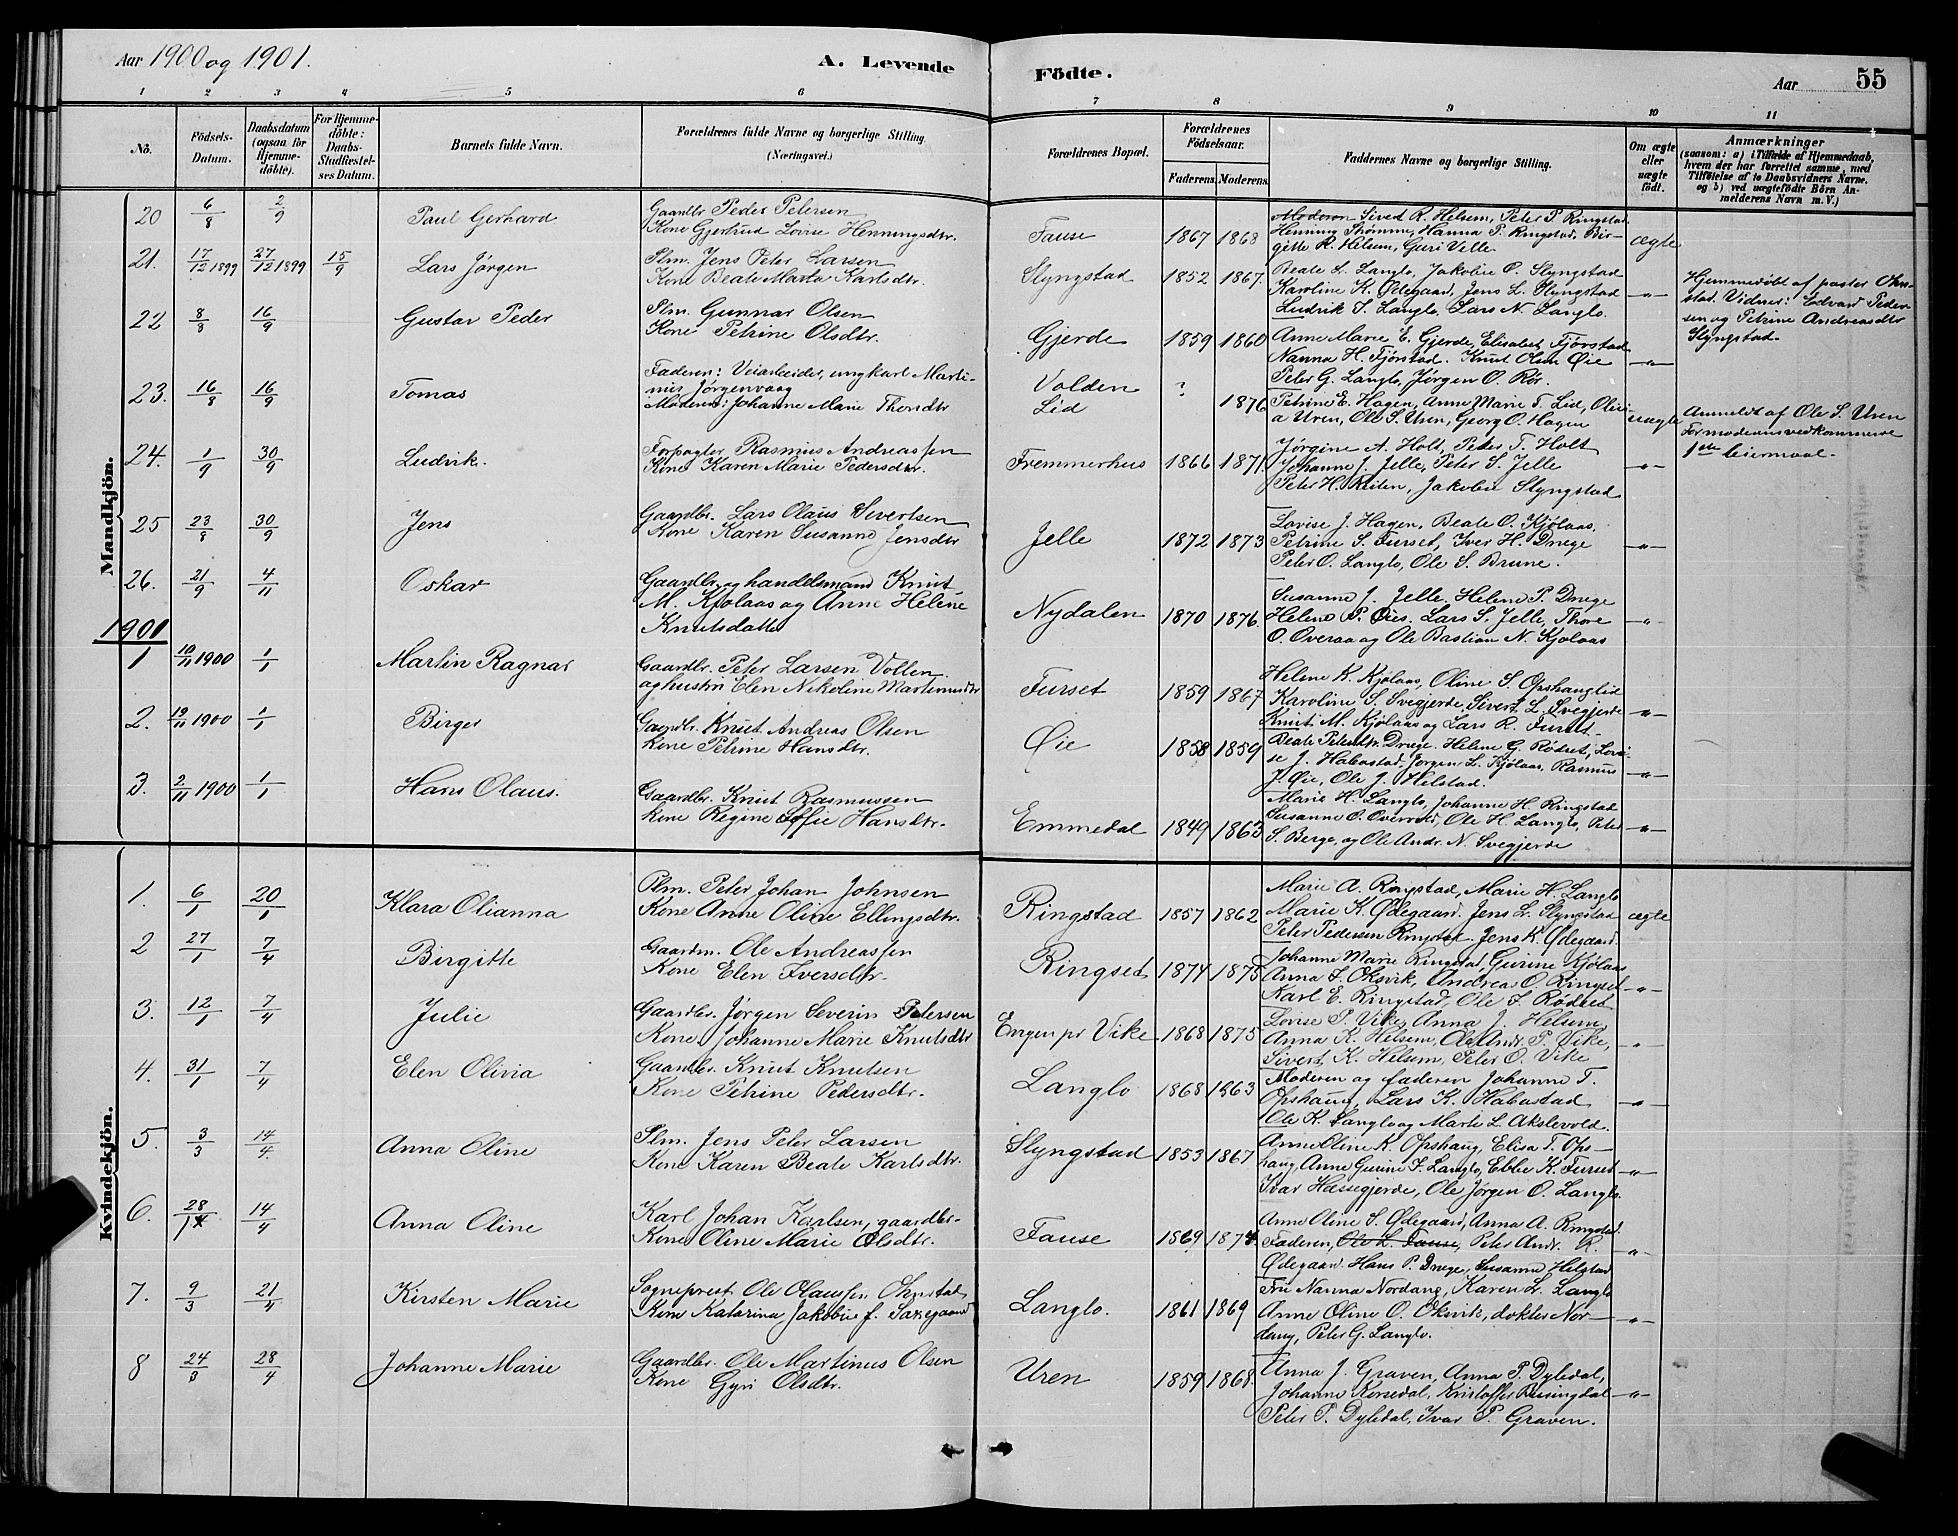 Aar 1900 og 1901.
A. Levende
Födte.
Aar
55
1 2 3 4 5 6 7 8 9 10 11
No.
Födsels-Datum.
Daabsdatum (ogsaa for Hjemme-döbte).
For Hjemme-döbte: Daabs-Stadfæstel-ses Datum.
Barnets fulde Navn.
Forældrenes fulde Navne og borgerlige Stilling. (Næringsvei.)
Forældrenes Bopæl.
Forældrenes Födselsaar.
Faderens. Moderens.
Faddernes Navne og borgerlige Stilling.
Om ægte eller uægte födt.
Anmærkninger (saasom: a) i Tilfælde af Hjemmedaab, hvem der har forrettet samme, med Tilföielse af to Daabsvidners Navne. og b) ved uægtefödte Börn An-melderens Navn m. V.)
Mandkjön.
20 6/8 2/9 Paul Gerhard
Gaardbr Peder Petersen
Kone Gjertrud Lovise Henningsdtr.
Fause 1867 1868
Moderen Sivert R. Helsem, Peter P. Ringstad
Henning Strömme, Hanna P. Ringstad, Bir-
gitte R. Helsem, Guri Velle.
ægte
21. 17/12 1899 27/12 1899 15/9 Lars Jørgen
Plm. Jens Peter Larsen
Kone Beate Marta Karlsdtr.
Slyngstad 1852 1867.
Beate L. Langlo, Jakobie O. Slyngstad
Karoline K. Ødegaard, Jens L. Slyngstad
Ludrik S. Langlo, Lars N. Langlo.
-"-
Hjemmedøbt af pastor Ohn-
stad. Vidner: Edvard Peder-
sen og Petrine Andreasdtr
Slyngstad.
22 8/8 16/9 Gustav Peder
Plm. Gunnar Olsen
Kone Petrine Olsdtr.
Gjerde 1859 1860
Anne Marie E. Gjerde, Elisabet Fjørstad
Nanna H. Fjørstad. Knut Olsen Øie
Peter G. Langlo, Jørgen O. Rør.
-"-
23. 16/8 16/9 Tomas
Faderen: Veiarbeider, ungkarl Marti-
nus Jørgenvaag
Moderen: Johanne Marie Thorsdtr
Volden ?
Lid 1876
Petrine E. Hagen, Anne Marie T. Lid, Olivi-
a Uren, Ole S. Uren, Georg O. Hagen
uægte
Anmeldt af Ole S. Uren
For moderens vedkommende
1ste leiermaal.
24. 1/9 30/9 Ludvik.
Forpagter Rasmus Andreassen
Kone Karen Marie Pedersdtr.
Fremmerhus 1866 1871.
Jørgine A. Holt, Peter T. Holt
Johanne J. Jelle, Peter S. Jelle
Peter H. Reiten, Jakobie Slyngstad
-"-
25 23/8 30/9 Jens
Gaardbr. Lars Olaus Sivertsen
Kone Karen Susanne Jensdtr
Jelle 1872 1873
Lovise J. Hagen, Beate O. Kjølaas.
Petrine S. Furset, Iver H. Drege
Peter O. Langlo, Ole S. Brune.
-"-
26. 21/9 4/11 Oskar
Gaardbr. og handelsmand Knut
M. Kjølaas og Anne Helene
Knutsdatter
Nydalen 1870 1876.
Susanne J. Jelle. Helene P. Drege
Helene P. Øies. Lars S. Jelle, Thore
O. Overaa og Ole Bastian N. Kjølaas
-"-
1901
1 10/11 1900 1/1 Martin Ragnar
Gaardbr. Peter Larsen Vollen.
og hustru Elen Nikoline Martinusdtr
Furset 1859 1867
Helene K. Kjølaas, Oline S. Opshauglid
Karoline S. Svegjerde, Sivert L. Svegjerde
Knut M. Kjølaas og Lars R. Furset.
-"-
2. 19/11 1900 1/1 Birger
Gaardbr. Knut Andreas Olsen
kone Petrine Hansdtr.
Øie 1858 1859
Beate Petersdtr. Drege. Helene G. Rødset, Lovi-
se J. Habostad, Jørgen L. Kjølaas, Rasmus
J. Øie, Ole J. Helstad.
-"-
3. 2/11 1900 1/1 Hans Olaus.
Gaardbr. Knut Rasmussen
kone Regine Sofie Hansdtr.
Emmedal 1849 1863
Marie H. Langlo, Johanne H. Ringstad
Susanne O. Overvold, Ole H. Langlo, Peter
S. Berge, og Ole Andr. N. Svegjerde
-"-
Kvindekjön.
1. 6/1 20/1 Klara Olianna
Plm. Peter Johan Johnsen
Kone Anne Oline Ellingsdtr.
Ringstad 1857 1862
Marie A. Ringstad, Marie H. Langlo
Marie K. Ødegaard. Jens L. Slyngstad
Peter Pedersen Ringstad. Jens K. Ødegaard.
ægte
2 27/1 7/4 Birgitte
Gaardm. Ole Andreassen
Kone Elen Iversdtr.
Ringset 1874 1875
Johanne Marie Ringstad, Gurine Kjølaas
Anna I. Oksvik, Andrea O. Ringset
Karl E. Ringstad, Ole I. Rødset
-"-
3. 12/1 7/4 Julie
Gaardbr. Jørgen Severin Petersen
Kone Johanne Marie Knutsdtr
Engen pr Vike 1868 1875
Lovise P. Vike, Anna J. Helsem,
Anna K. Helsem, Ole Andr. P. Vike,
Sivert K. Helsem, Peter O. Vike
-"-
4. 31/1 7/4 Elen Olivia
Gaardbr. Knut Knutsen
Kone Petrine Pedersdtr.
Langlo 1868 1863
Moderen og faderen Johanne T.
Opshaug, Lars K. Habostad
Ole K. Langlo og Marte L. Akslevold.
-"-
5. 3/3 14/4 Anna Oline
Plm. Jens Peter Larsen
Kone Karen Beate Karlsdtr.
Slyngstad 1853 1867
Anne Oline K. Opshaug, Elisa T. Ops-
haug Anne Gurine I. Langlo, Ebbe K. Furset
Ivar Hassegjerde, Ole Jørgen O. Langlo.
-"-
6. 28/1 14/4 Anna Oline
Karl Johan Karlsen, gaardbr.
Kone Oline Marie Olsdtr.
Fause 1869 1874.
Anne Oline S. Ødegaard, Anna A. Ringstad.
Faderen, Ole L. Fause, Peter Andr. R.
Ødegaard. Hans P. Drege, Susanne Helstad
-"-
7. 9/3 21/4 Kirsten Marie
Sogneprest Ole Olaussen Ohnstad
Kone Katarina Jakobine f. Saxegaard
Langlo. 1861 1869
Fru Nanna Nordang, Karen L. Langlo
Anne Oline O. Oksvik, dokter Nor-
dang, Peter G. Langlo.
-"-
8 24/3 28/4 Johanne Marie
Gaardbr. Ole Martinus Olsen
Kone Gyri Olsdtr.
Uren 1859 1868.
Anna J. Graven, Anna P. Dyledal,
Johanne Korsedal, Kristoffer Reisingdal
Peter P. Dyledal, Ivar P. Graven.
-"-